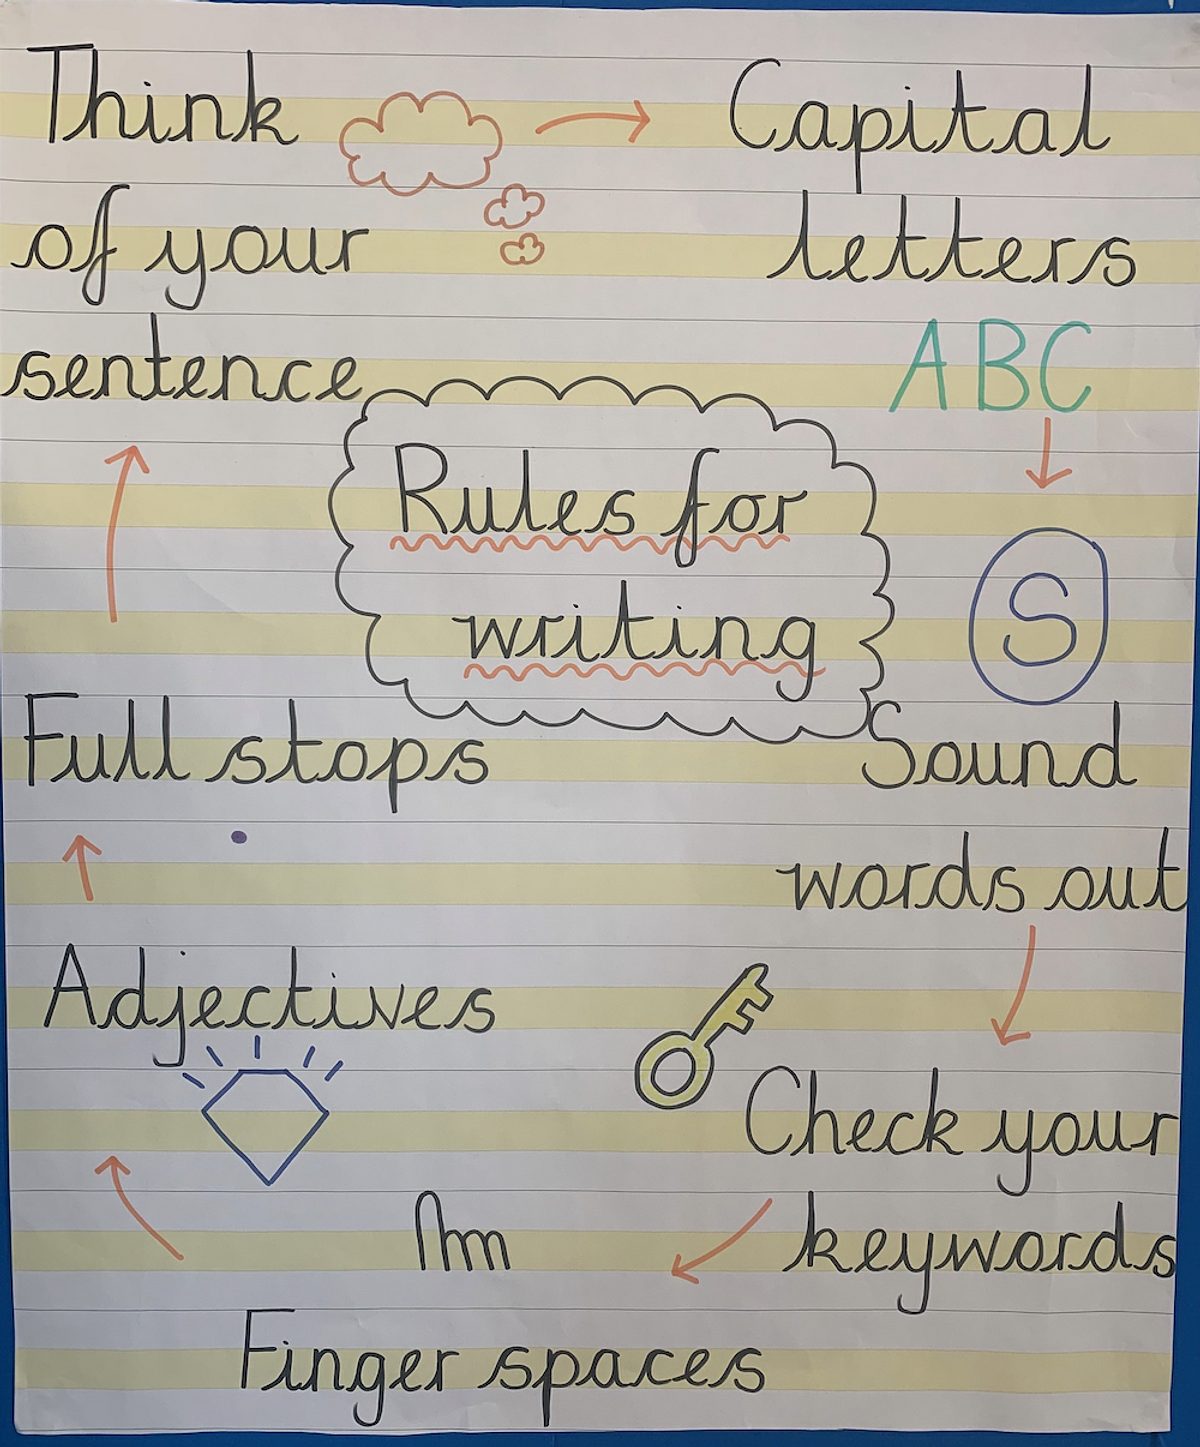 Think
of your
sentence
Capital
letters
ABC
Rules for
writing
S
Sound
words out
Check your
keywords
Finger spaces
Adjectives
Full stops